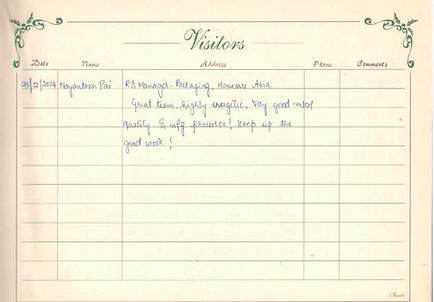 Visitors
Date Name Address Phone Comments
25/2/2014 Nayantara Pai R&D Manager - Packaging, Homecare Asia.
Great team, highly energetic. Very good control
quality & mfg processes! Keep up the
good work!